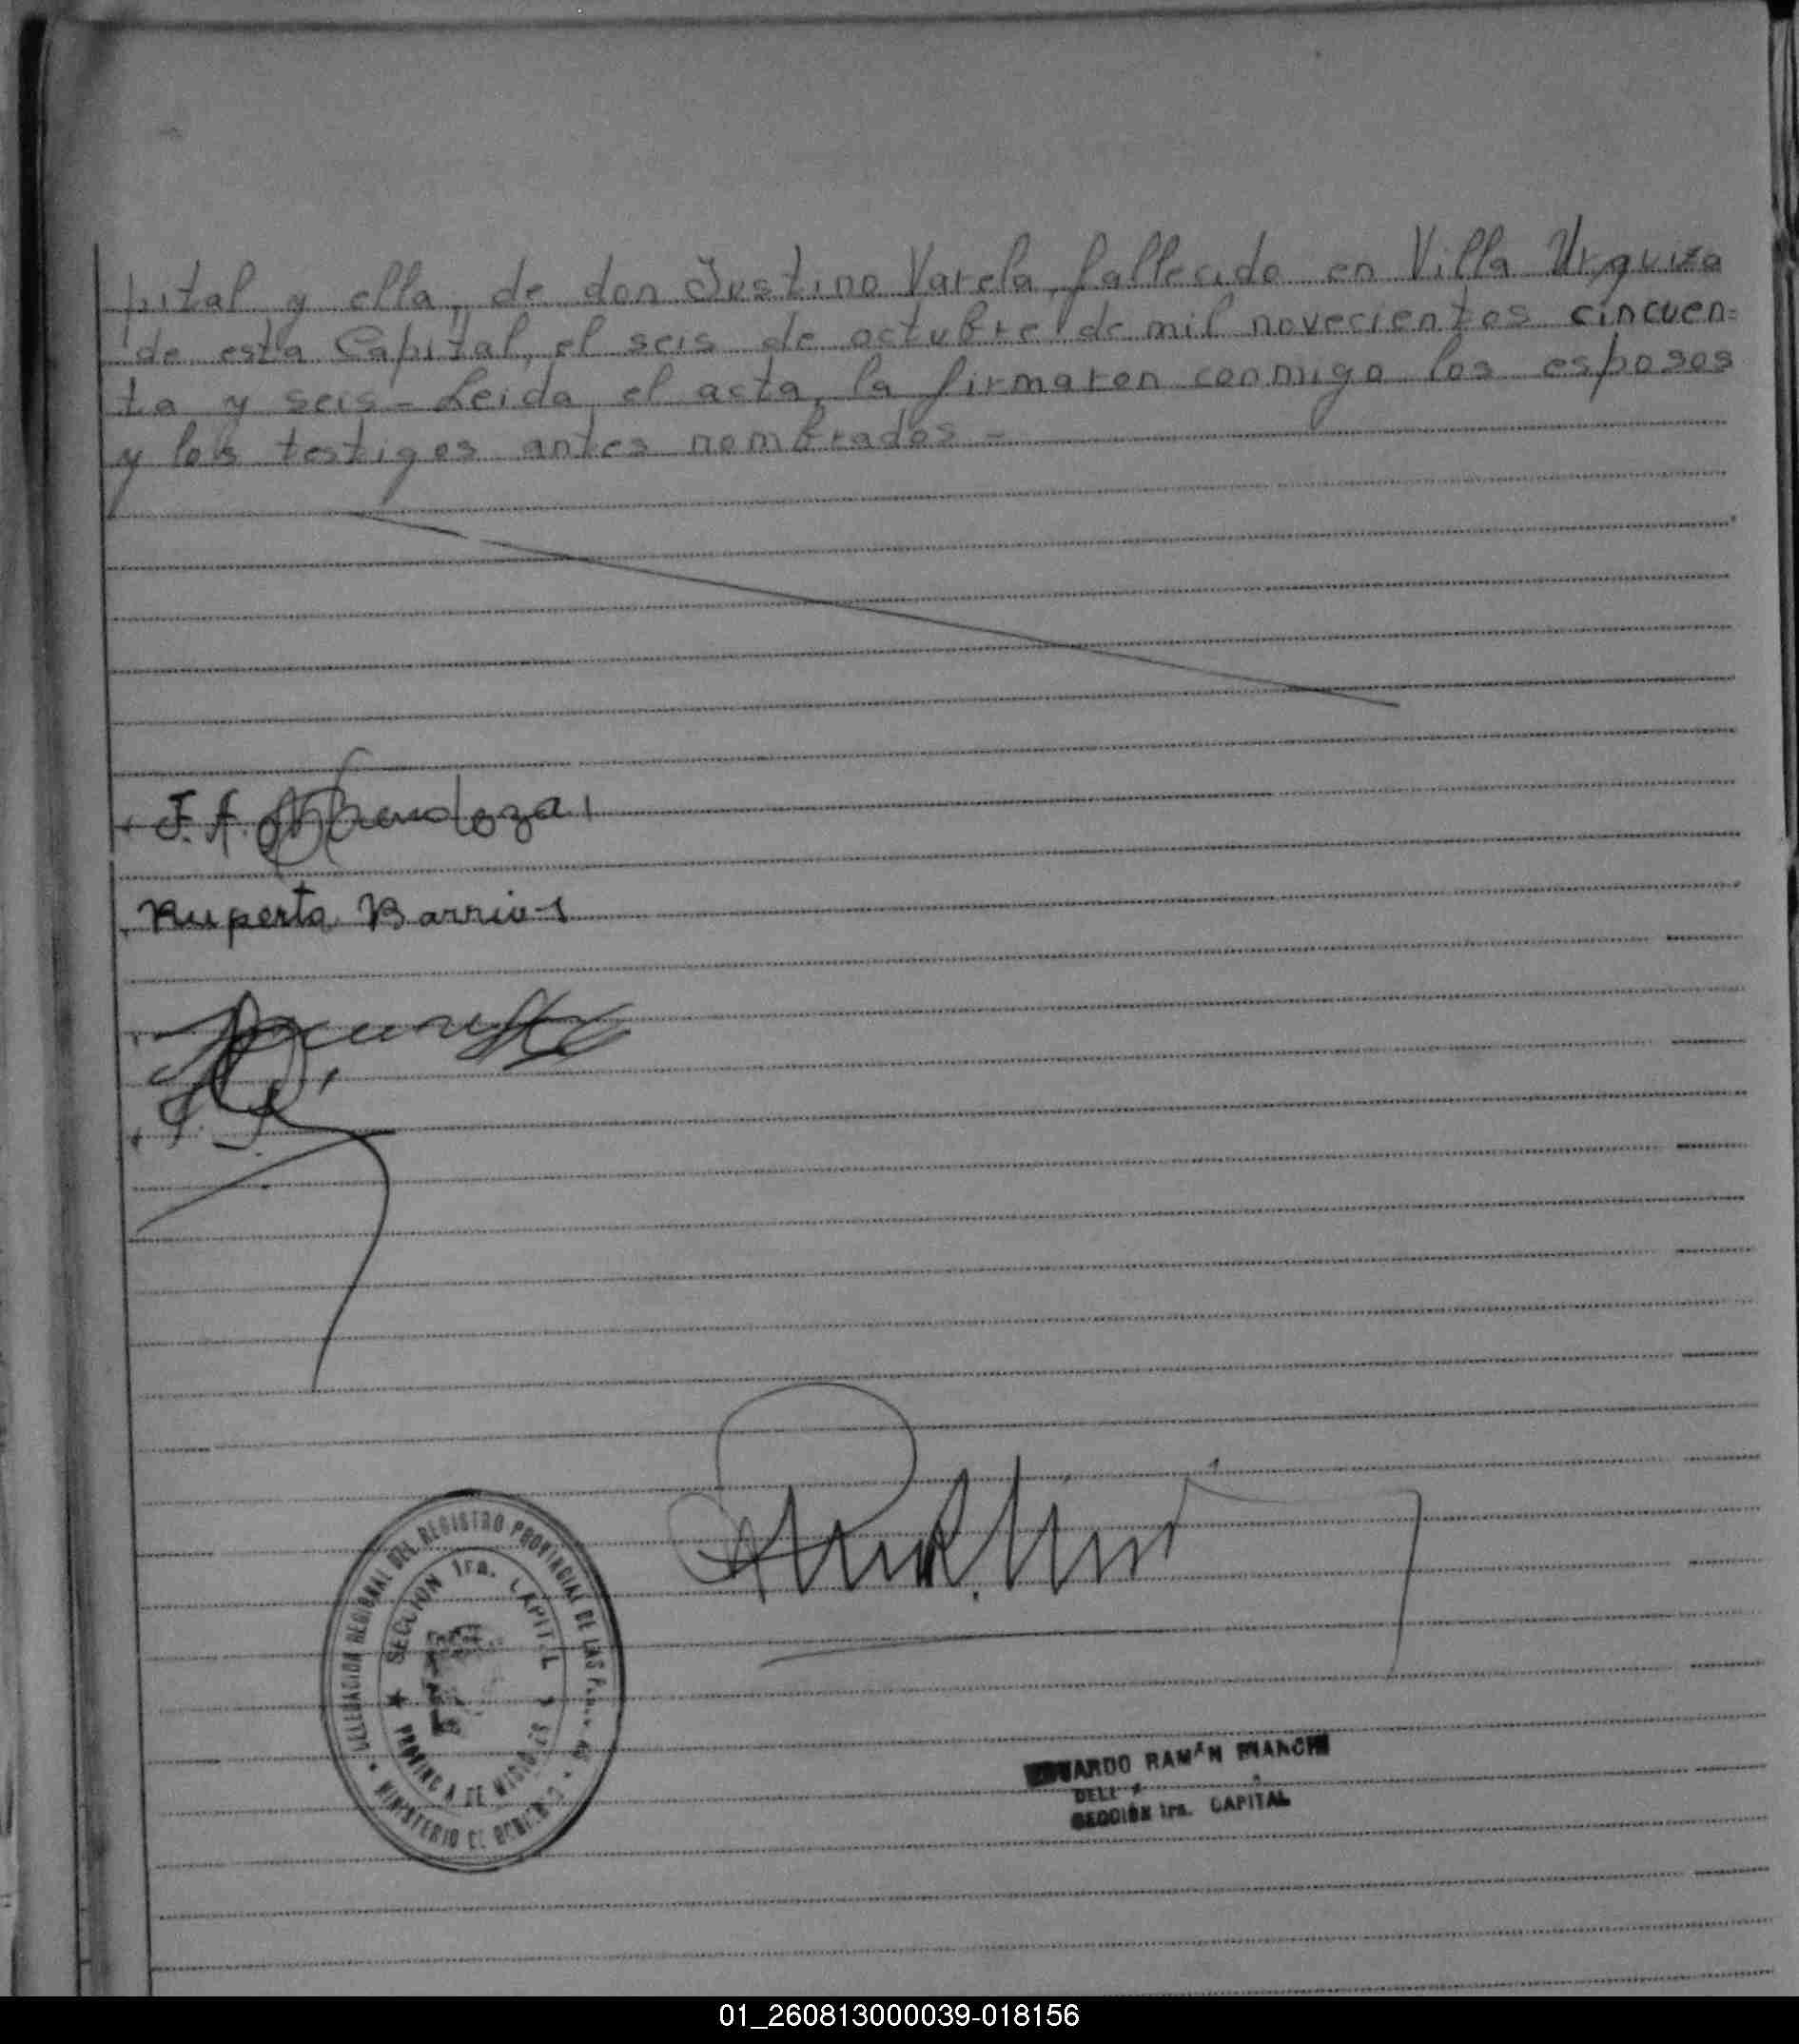 pital y ella, de don Justino Varela, fallecido en Villa Urquiza
de esta Capital, el seis de octubre de mil novecientos cincuen=
ta y seis - Leida el acta, la firmaron conmigo los esposos
y los testigos antes nombrados -
J. A. Mendoza
Ruperta Barrios
DELEGACION REGIONAL DEL REGISTRO PROVINCIAL DE LAS
SECCION 1ra. CAPITAL
PROVINCIA DE MISIONES
MINISTERIO DE GOBIERNO
EDUARDO RAMÓN BIANCHI
SECCIÓN 1ra. CAPITAL
01_260813000039-018156